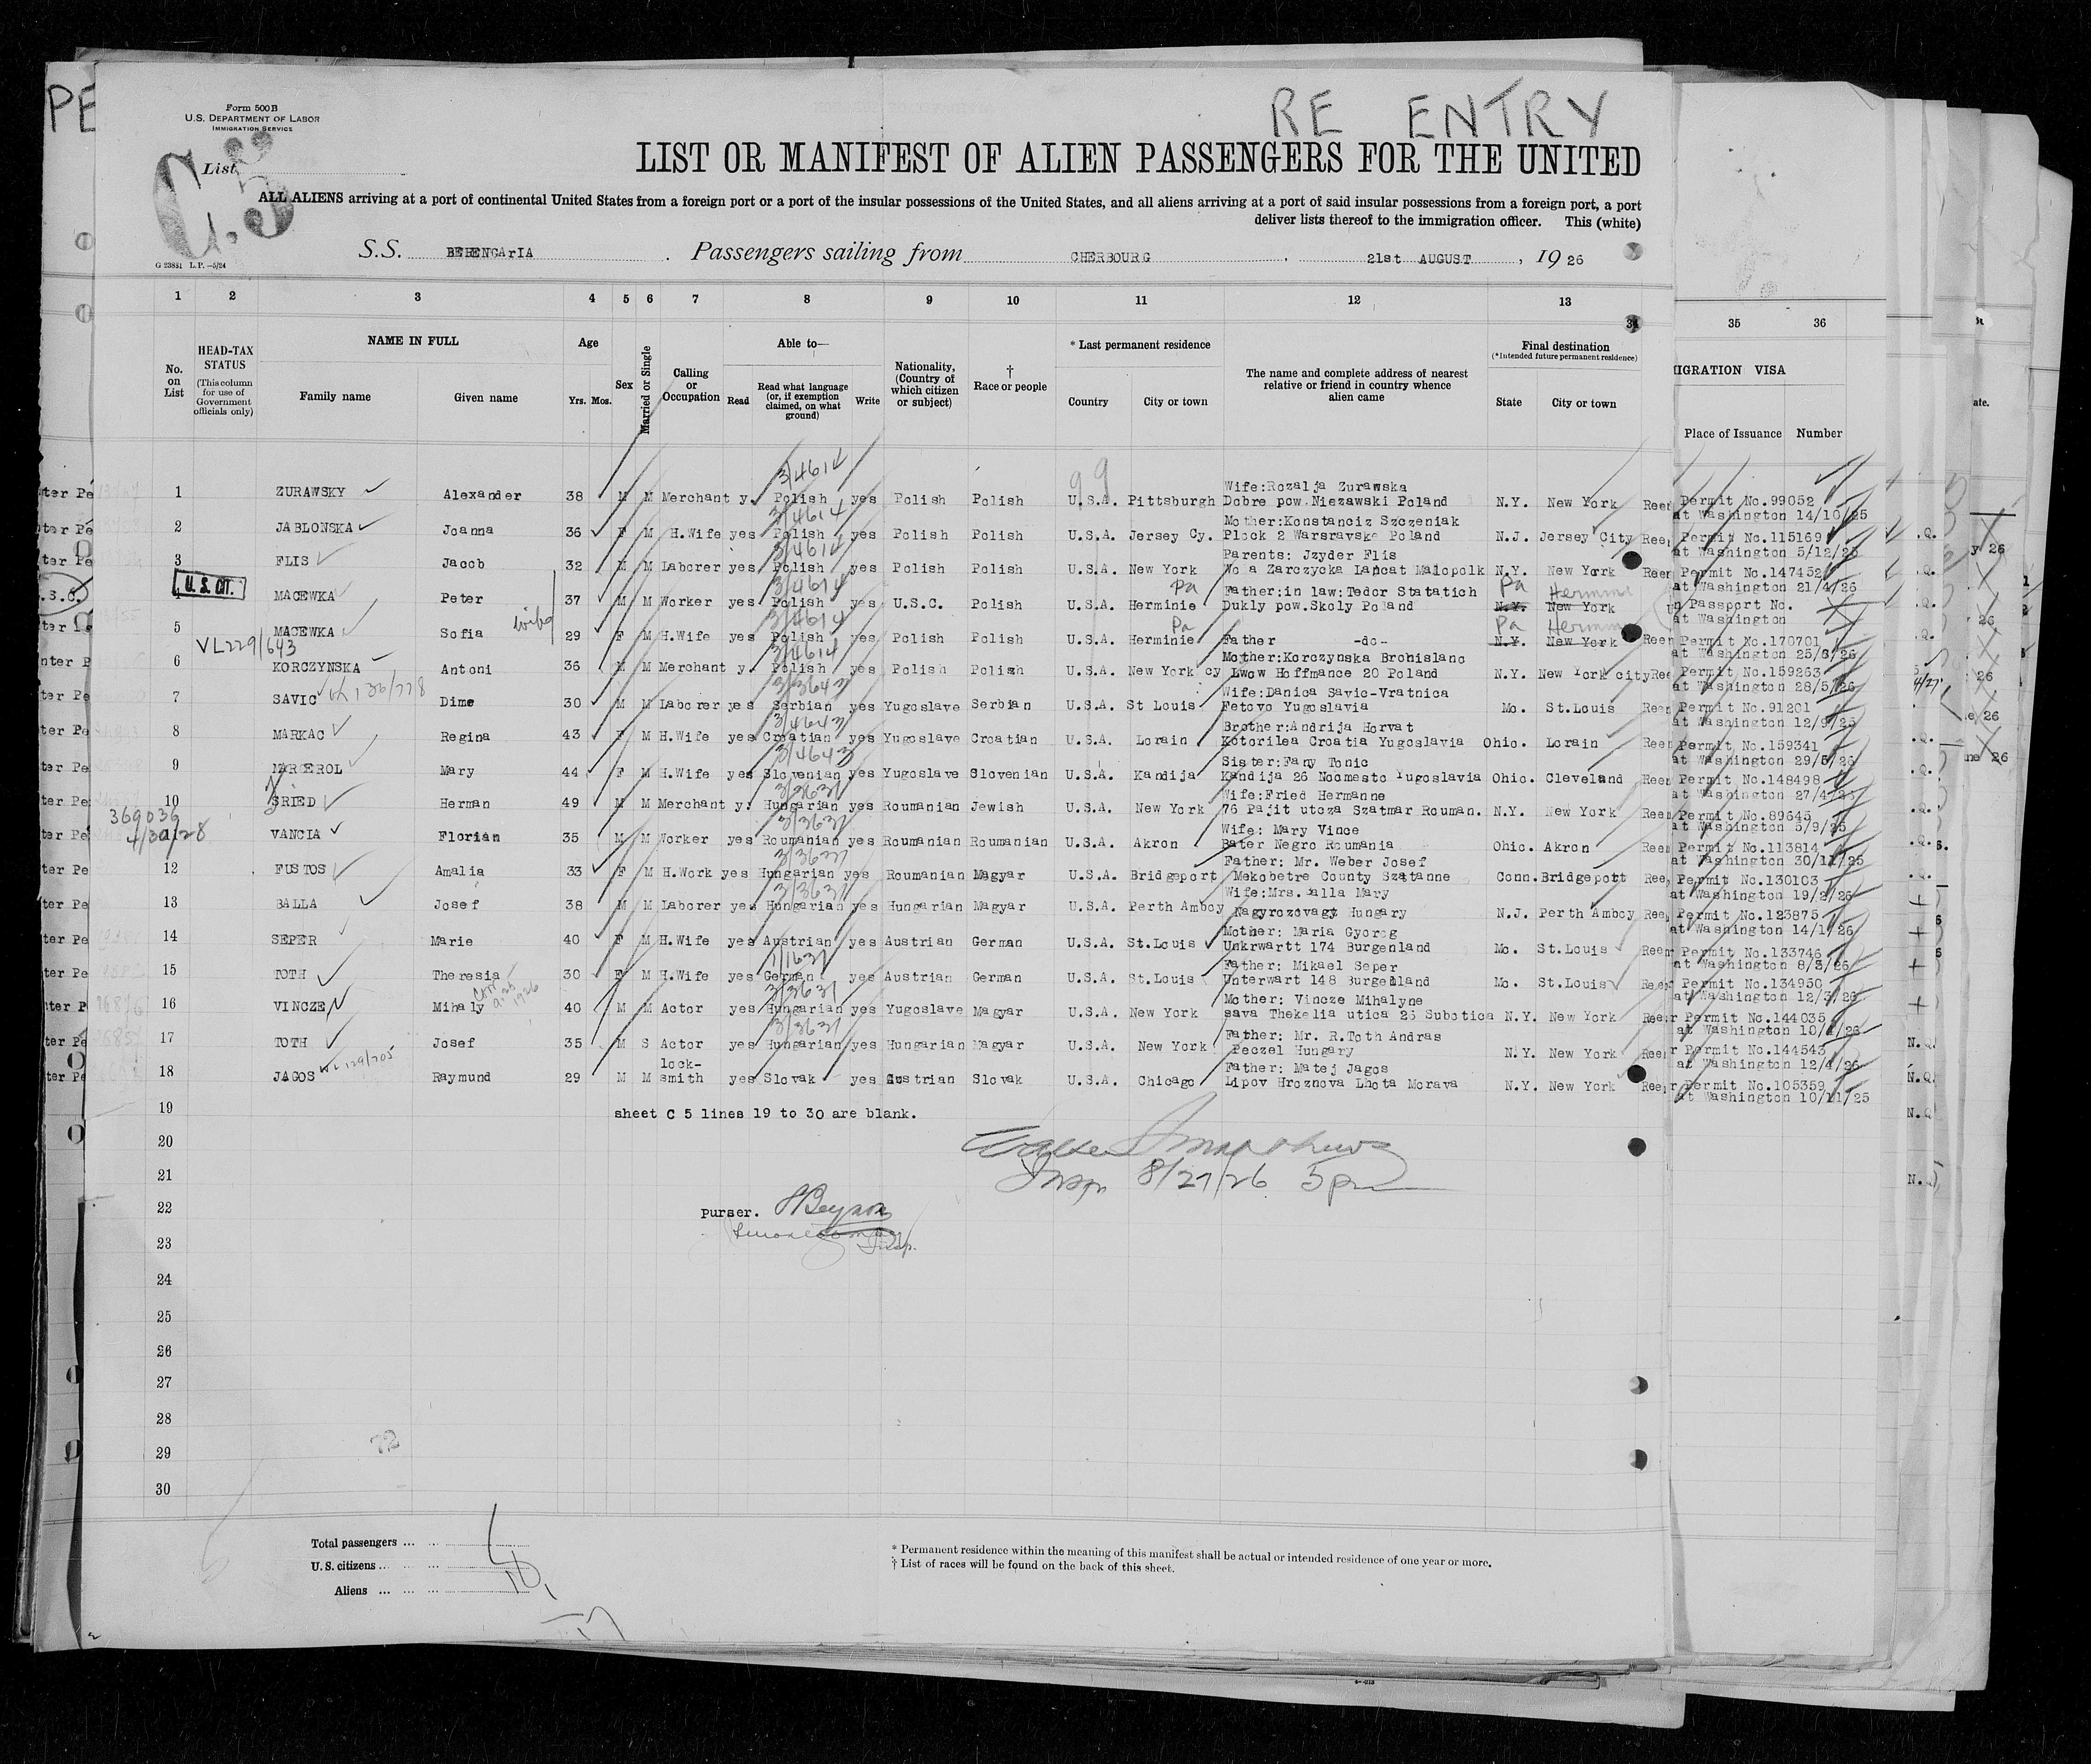 RE ENTRY
Form 500B
U.S. DEPARTMENT OF LABOR
IMMIGRATION SERVICE
List
C.5
LIST OR MANIFEST OF ALIEN PASSENGERS FOR THE UNITED
ALL ALIENS arriving at a port of continental United States from a foreign port or a port of the insular possessions of the United States, and all aliens arriving at a port of said insular possessions from a foreign port, a port
deliver lists thereof to the immigration officer. This (white)
S.S. BEBENGArIA . Passengers sailing from CHERBOURG , 21st AUGUST , 19 26
G 23831 L.P.—5/24
1 2 3 4 5 6 7 8 9 10 11 12 13
34 35 36
No. on List
HEAD-TAX STATUS
(This column for use of Government officials only)
NAME IN FULL
Family name Given name
Age
Yrs. Mos.
Sex
Married or Single
Calling or Occupation
Able to—
Read
Read what language (or, if exemption claimed, on what ground)
Write
Nationality, (Country of which citizen or subject)
† Race or people
* Last permanent residence
Country City or town
The name and complete address of nearest relative or friend in country whence alien came
Final destination
(*Intended future permanent residence)
State City or town
IGRATION VISA
Place of Issuance Number
99
3/4614
Wife:Rozalja Zurawska
1 ZURAWSKY Alexander 38 M M Merchant y. Polish yes Polish Polish U.S.A. Pittsburgh Dobre pow.Niezawski Poland N.Y. New York Reen Permit No.99052
at Washington 14/10/25
3/4614
Mother:Konstanciz Szczeniak
2 JABLONSKA Joanna 36 F M H.Wife yes Polish yes Polish Polish U.S.A. Jersey Cy. Plock 2 Warsravska Poland N.J. Jersey City Ree Permit No.115169
at Washington 5/12/25
3/4614
Parents: Jzyder Flis
3 FLIS Jacob 32 M M Laborer yes Polish yes Polish Polish U.S.A. New York Wo a Zarczycka Lancat Malopolk N.Y. New York Reen Permit No.147452
at Washington 21/4/26
U.S. CIT.
3/4614
Pa Father:in law:Tedor Statatich Pa
MACEWKA Peter 37 M M Worker yes Polish yes U.S.C. Polish U.S.A. Herminie Dukly pow.Skoly Poland N.Y. New York n Passport No.
at Washington
wife
3/4614
Pa Pa
5 MACEWKA Sofia 29 F M H.Wife yes Polish yes Polish Polish U.S.A. Herminie Father -do- N.Y. New York Reen Permit No.170701
at Washington 25/8/26
VL229/643
3/4614
Mother:Korczynska Bronislanc
6 KORCZYNSKA Antoni 36 M M Merchant y. Polish yes Polish Polish U.S.A. New York cy Lwow Hoffmance 20 Poland N.Y. New York city Ree Permit No.159263
at Washington 28/5/26
3/3643
Wife:Danica Savic-Vratnica
7 SAVIC Dime 30 M M Laborer yes Serbian yes Yugoslave Serbian U.S.A. St Louis Fetovo Yugoslavia Mo. St.Louis Reen Permit No.91201
at Washington 12/9/25
3/4643
Brother:Andrija Horvat
8 MARKAC Regina 43 F M H.Wife yes Croatian yes Yugoslave Croatian U.S.A. Lorain Kotorilea Croatia Yugoslavia Ohio. Lorain Reen Permit No.159341
at Washington 29/5/26
3/4643
Sister:Fany Tonic
9 MARCEROL Mary 44 F M H.Wife yes Slovenian yes Yugoslave Slovenian U.S.A. Kandija Kandija 26 Noomesto Yugoslavia Ohio. Cleveland Reen Permit No.148498
at Washington 27/4/26
3/3631
Wife:Fried Hermanne
10 SRIED Herman 49 M M Merchant y. Hungarian yes Roumanian Jewish U.S.A. New York 76 Pajit utcza Szatmar Rouman. N.Y. New York Reen Permit No.89645
at Washington 5/9/25
369039
4/30/28
3/3631
Wife: Mary Vince
VANCIA Florian 35 M M Worker yes Roumanian yes Roumanian Roumanian U.S.A. Akron Bater Negro Roumania Ohio. Akron Reen Permit No.113814
at Washington 30/11/25
3/3631
Father: Mr. Weber Josef
12 FUSTOS Amalia 33 F M H.Work yes Hungarian yes Roumanian Magyar U.S.A. Bridgeport Mekobetre County Szatanne Conn. Bridgepott Ree Permit No.130103
at Washington 19/2/26
3/3631
Wife:Mrs. alla Mary
13 BALLA Josef 38 M M Laborer yes Hungarian yes Hungarian Magyar U.S.A. Perth Amboy Nagyrozovagy Hungary N.J. Perth Amboy Ree Permit No.123875
at Washington 14/1/26
Mother: Maria Gyorog
14 SEPER Marie 40 F M H.Wife yes Austrian yes Austrian German U.S.A. St.Louis Unkrwartt 174 Burgenland Mo. St.Louis Reen Permit No.133746
at Washington 8/3/26
1/1631
Father: Mikael Seper
15 TOTH Theresia 30 F M H.Wife yes German yes Austrian German U.S.A. St.Louis Unterwart 148 Burgenland Mo. St.Louis Reen Permit No.134950
at Washington 12/3/26
3/3631
Mother: Vincze Mihalyne
16 VINCZE Mihaly 40 M M Actor yes Hungarian yes Yugoslave Magyar U.S.A. New York sava Thekelia utica 25 Subotica N.Y. New York Reen r Permit No.144035
at Washington 10/4/26
3/3631
Father: Mr. R.Toth Andras
17 TOTH Josef 35 M S Actor yes Hungarian yes Hungarian Magyar U.S.A. New York Peczel Hungary N.Y. New York Reen r Permit No.144543
at Washington 12/4/26
lock-
Father: Matej Jagos
18 JAGOS Raymund 29 M M smith yes Slovak yes Austrian Slovak U.S.A. Chicago Lipov Hroznova Lhota Morava N.Y. New York Ree r Permit No.105359
at Washington 10/11/25
19 sheet C 5 lines 19 to 30 are blank.
20
21 Insp. 8/27/26 5pm
22 purser.
23 Insp.
24
25
26
27
28
29
30
Total passengers ... ...
U.S. citizens ... ...
Aliens ... ... ...
* Permanent residence within the meaning of this manifest shall be actual or intended residence of one year or more.
† List of races will be found on the back of this sheet.